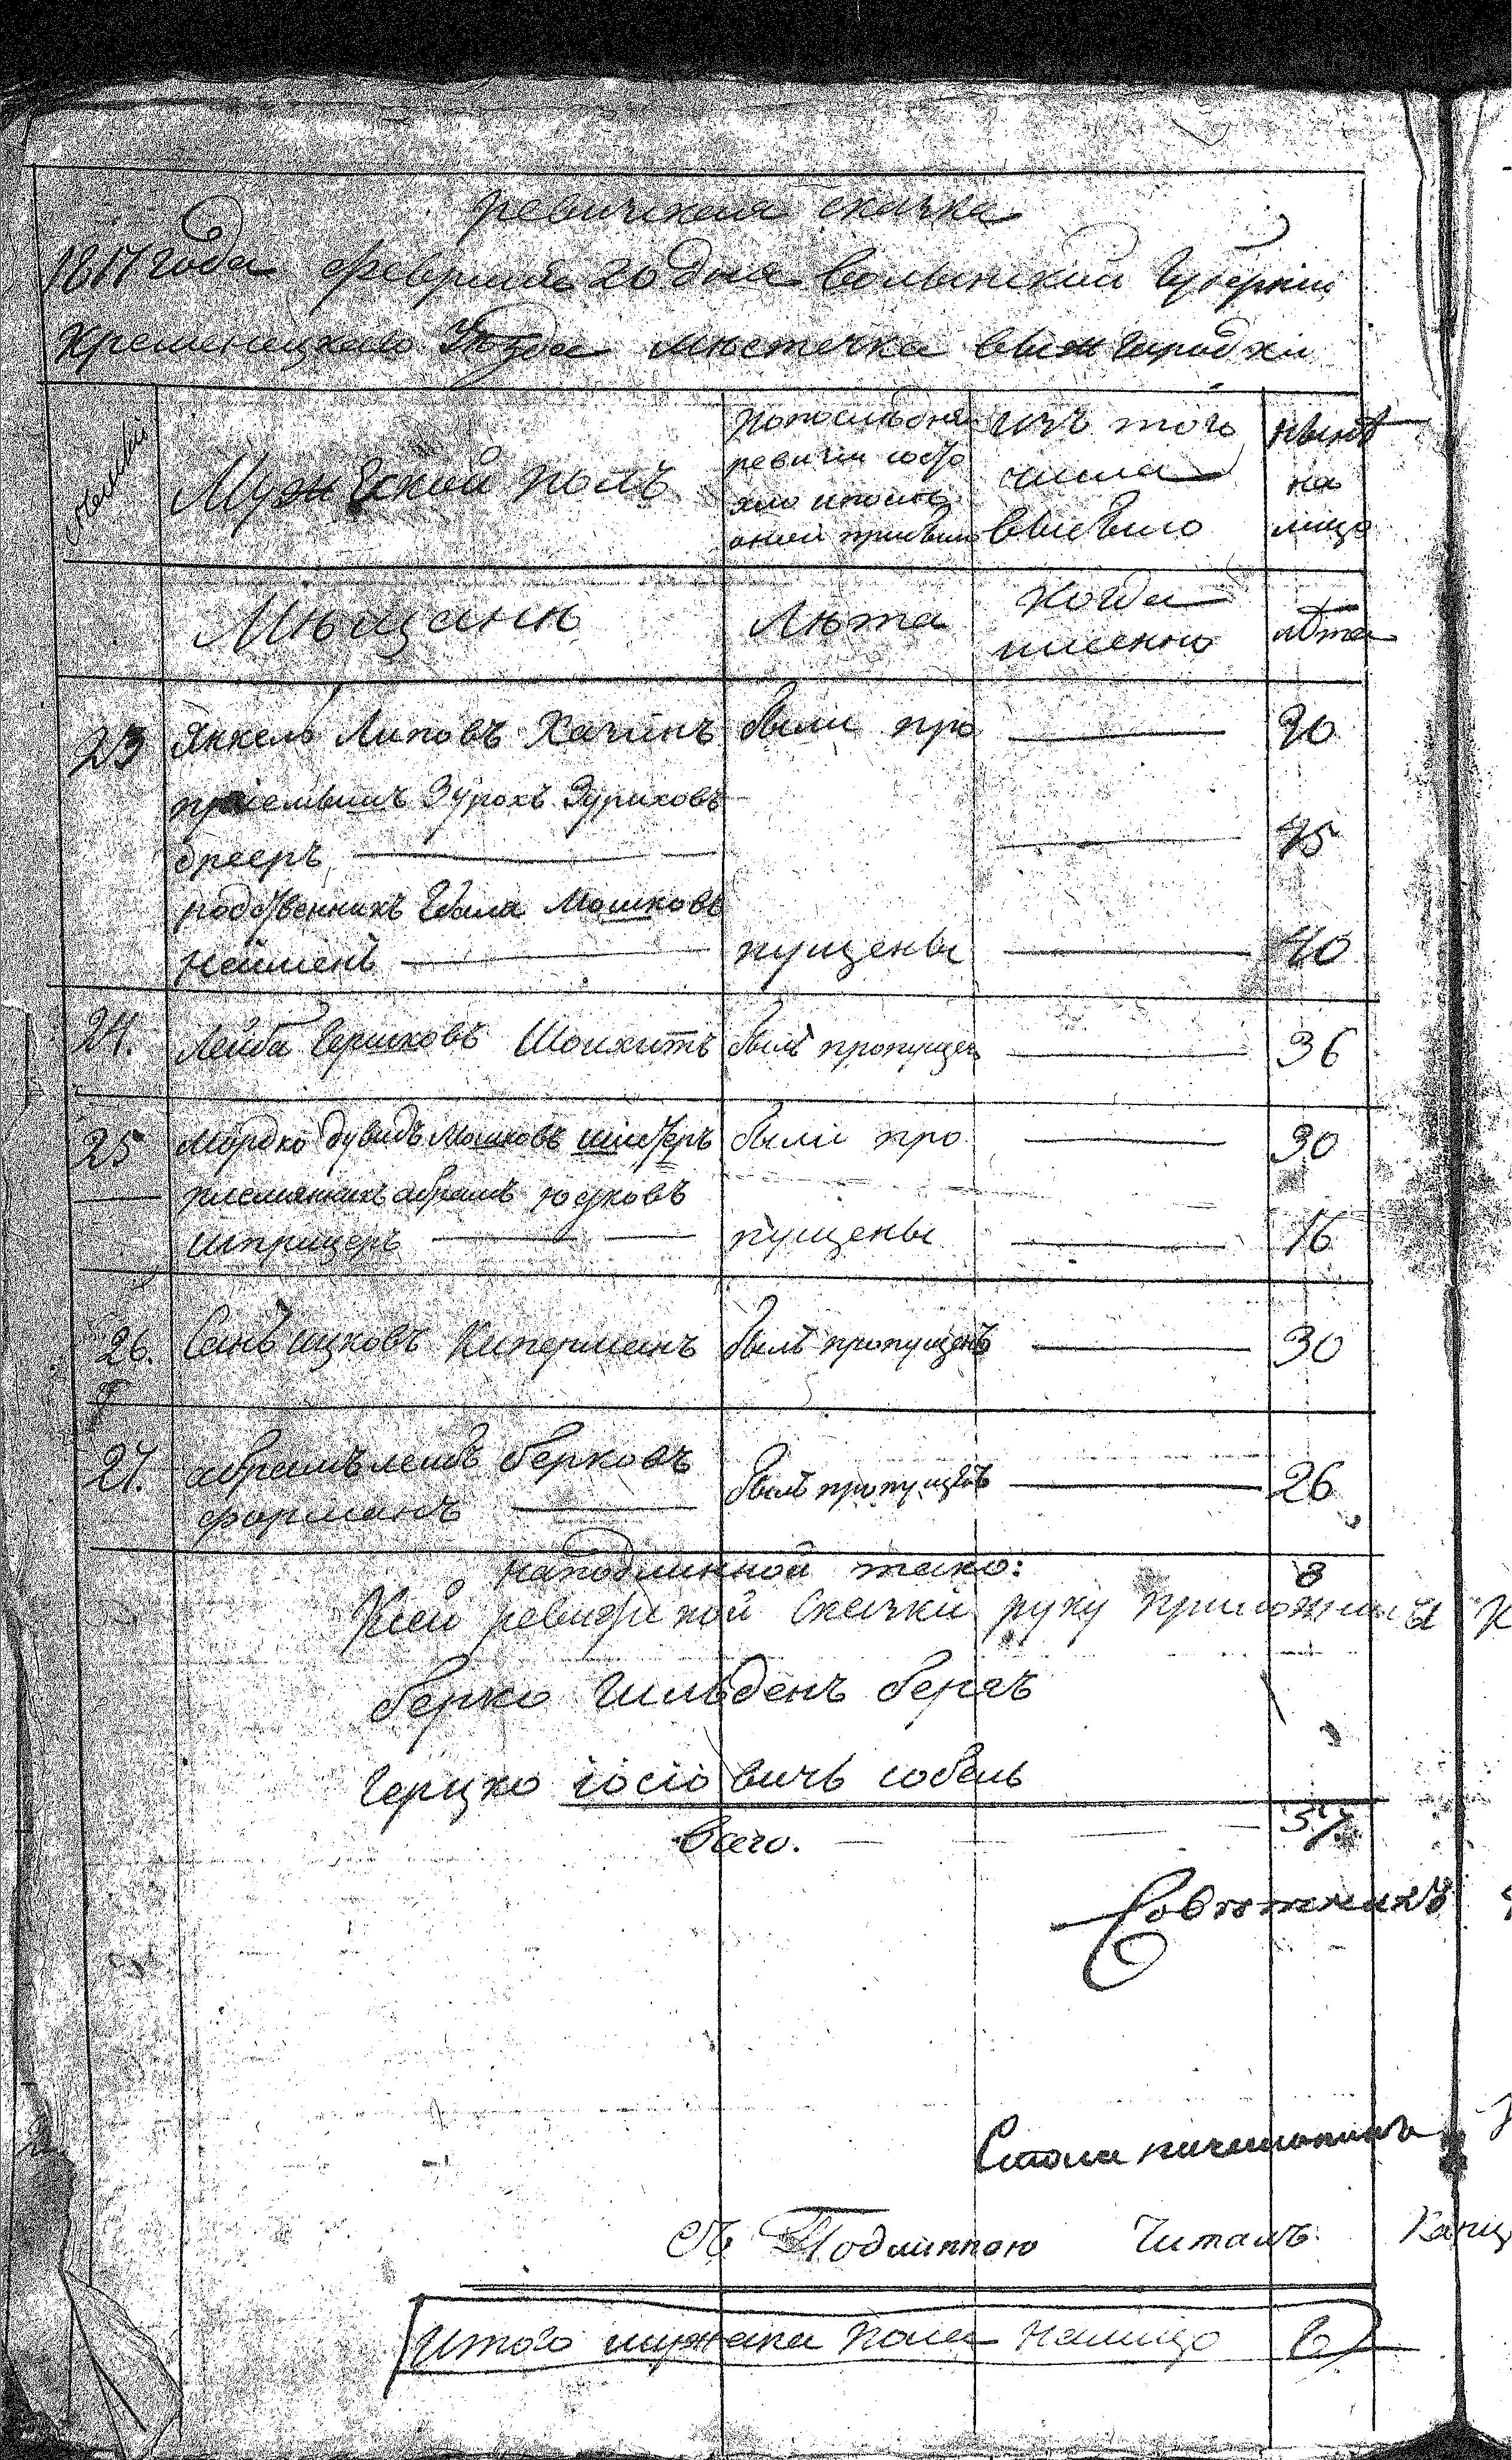 ревижская сказка
1817 года февраля 20 дня Волынской Губернии
Кременецкаго Уѣзда мѣстечка Вышгородки
Мужеской полъ
попослѣдней
ревизіи состо
яло и после
оной прибыло
изъ того
числа
выбыло
нынѣ
на
лицо
Мѣщане
Лѣта
когда
именно
лѣта
23 Янкель Липовъ Хачинъ были про 20
пріемышъ Зурохъ Зуриховъ
бреєръ 75
родственникъ Мошковъ
Нейменъ пущены 40
24. Лейба Гершковъ Шоихитъ былъ пропущен 36
25 Мордко дувидъ Мошковъ были про 30
племянникъ абрамъ юдковъ
шприцеръ пущены 16
26. ицковъ Киперманъ былъ пропущенъ 30
27. абрамъ лейбъ берковъ
форманъ былъ пропущенъ 26
Наподлинной тако: 8
Ксей ревизской Сказки руку приложили
берко Гильденъ бергъ
Герцко іосіовичъ собель
Всего. 57
Совѣтникъ
Столоначальникъ
Съ Подлинною Читалъ Канц
Итого мужеска пола налицо